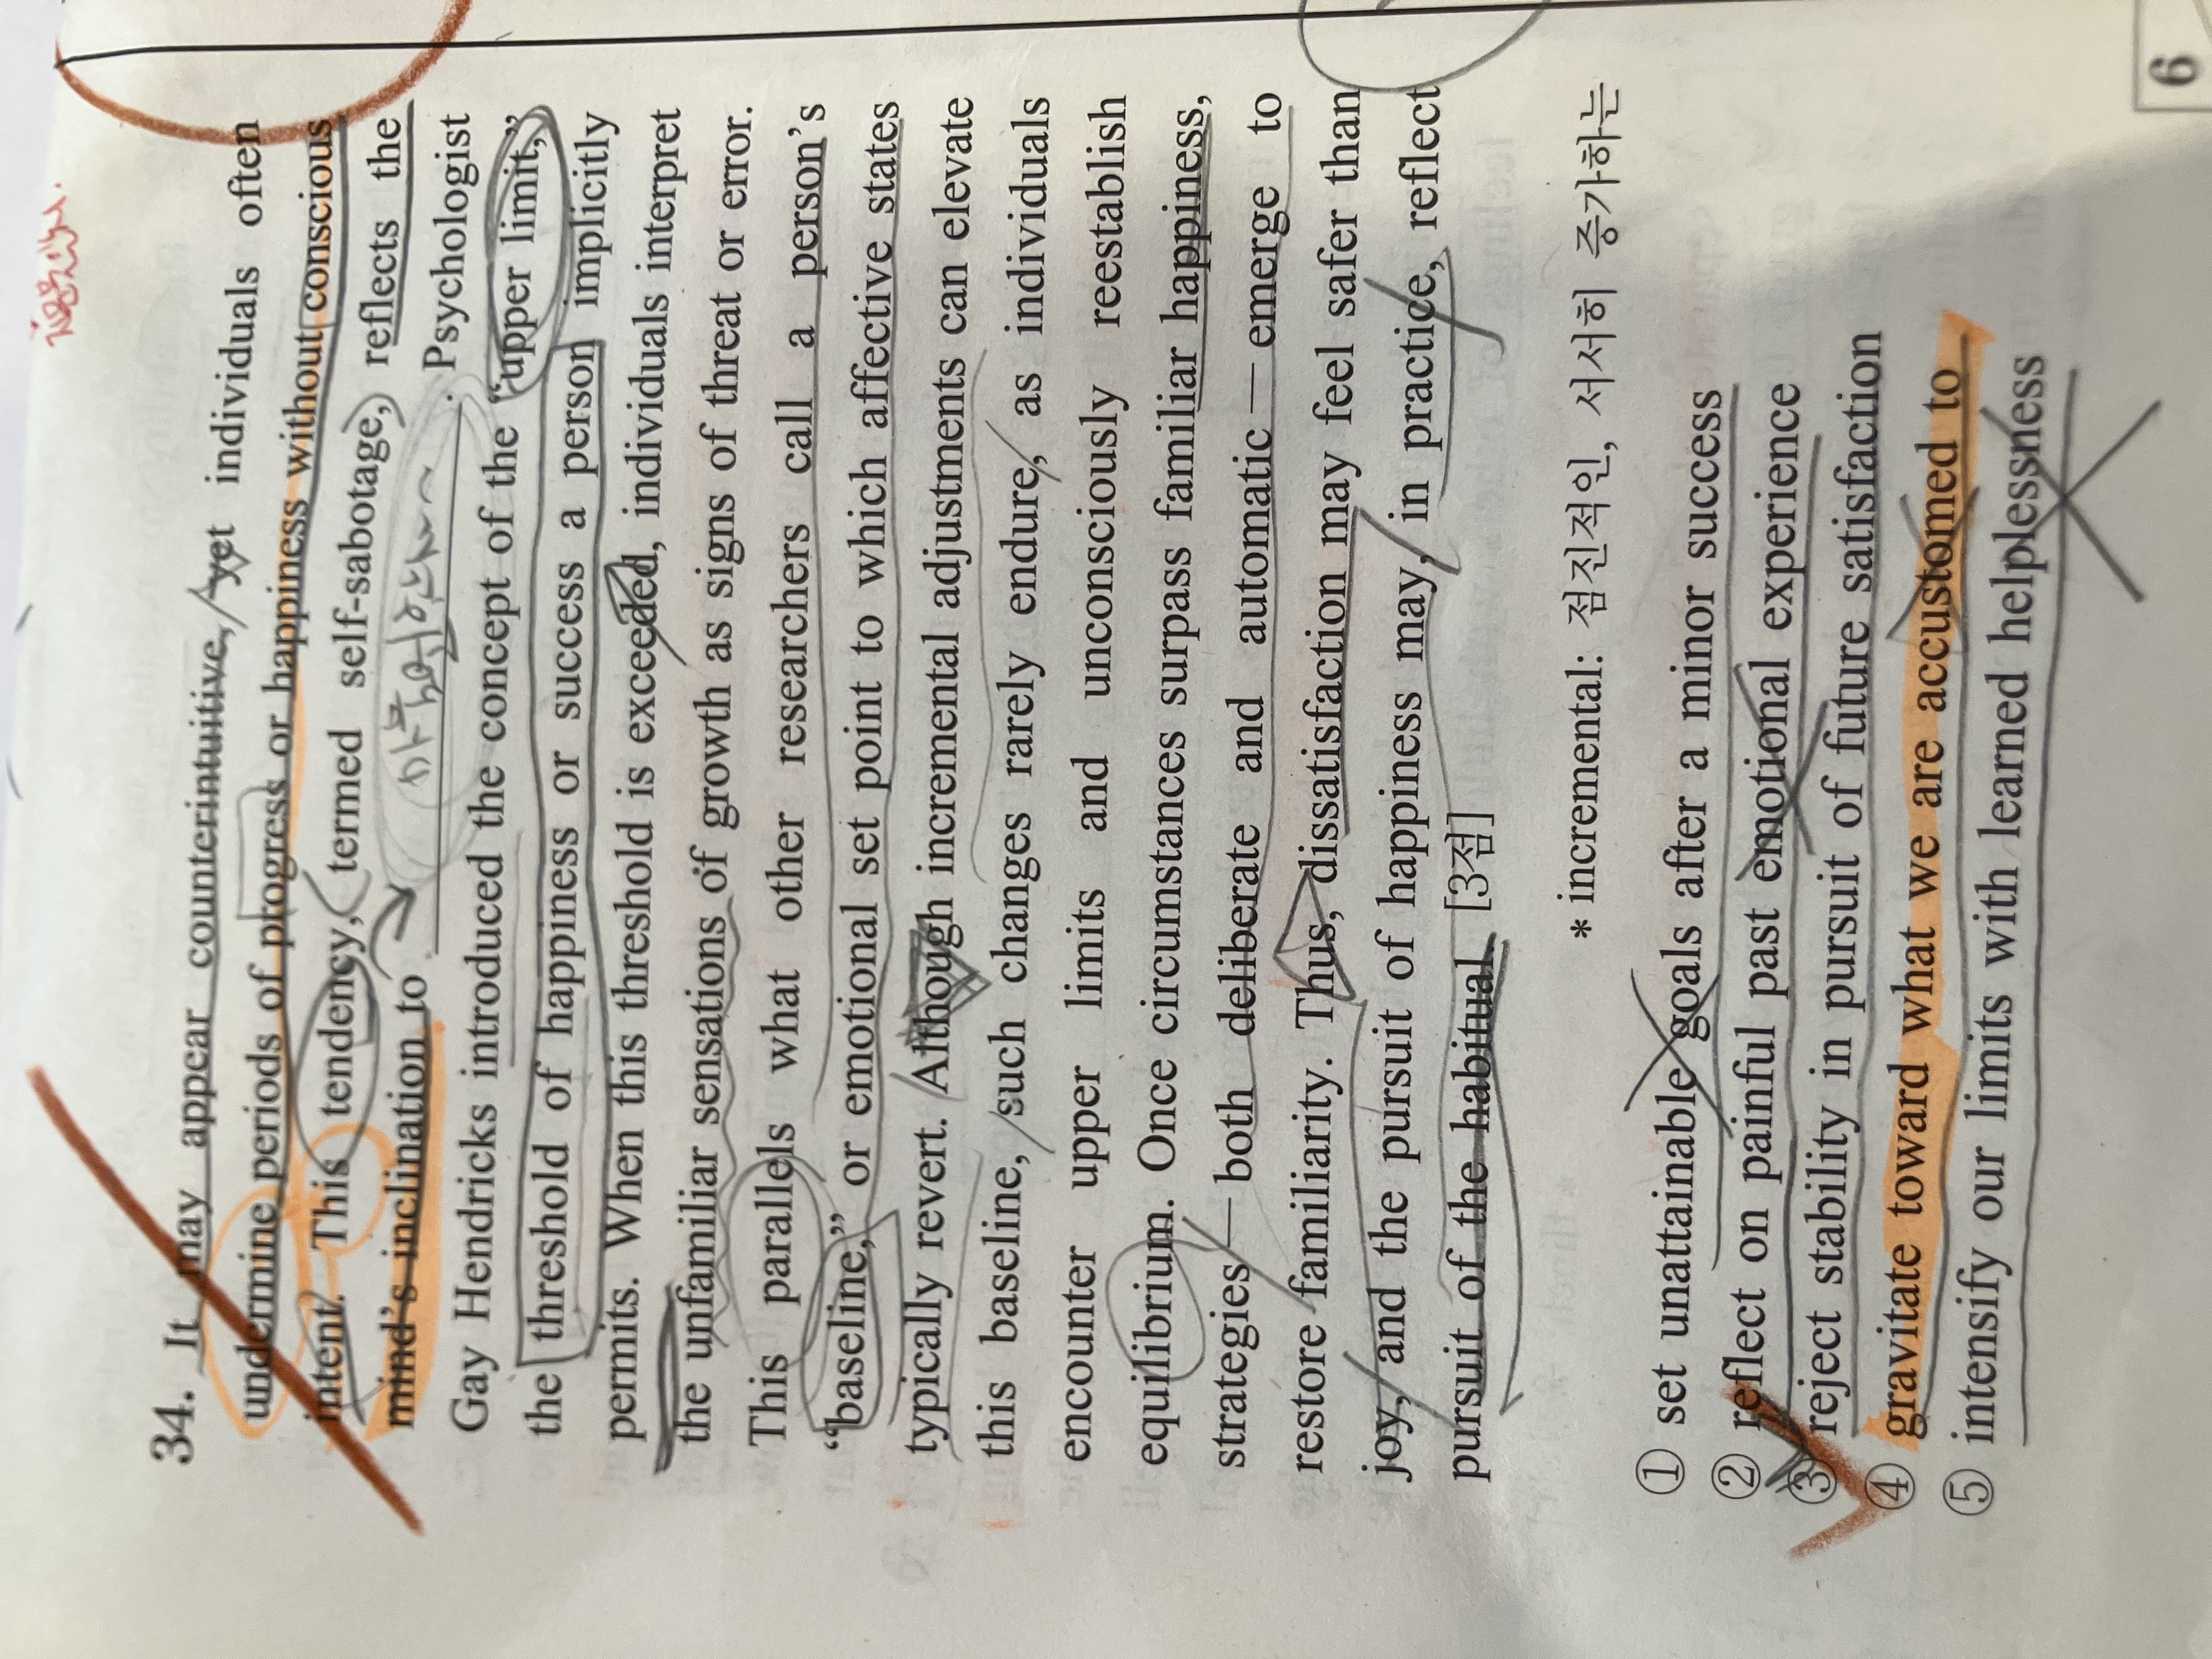 34. It may appear counterintuitive, yet individuals often
undermine periods of progress or happiness without conscious
intent. This tendency, termed self-sabotage, reflects the
mind's inclination to ____________. Psychologist
Gay Hendricks introduced the concept of the “upper limit,”
the threshold of happiness or success a person implicitly
permits. When this threshold is exceeded, individuals interpret
the unfamiliar sensations of growth as signs of threat or error.
This parallels what other researchers call a person's
“baseline,” or emotional set point to which affective states
typically revert. Although incremental adjustments can elevate
this baseline, such changes rarely endure, as individuals
encounter upper limits and unconsciously reestablish
equilibrium. Once circumstances surpass familiar happiness,
strategies — both deliberate and automatic — emerge to
restore familiarity. Thus, dissatisfaction may feel safer than
joy, and the pursuit of happiness may, in practice, reflect
pursuit of the habitual. [3점]
* incremental: 점진적인, 서서히 증가하는
① set unattainable goals after a minor success
② reflect on painful past emotional experience
③ reject stability in pursuit of future satisfaction
④ gravitate toward what we are accustomed to
⑤ intensify our limits with learned helplessness
6